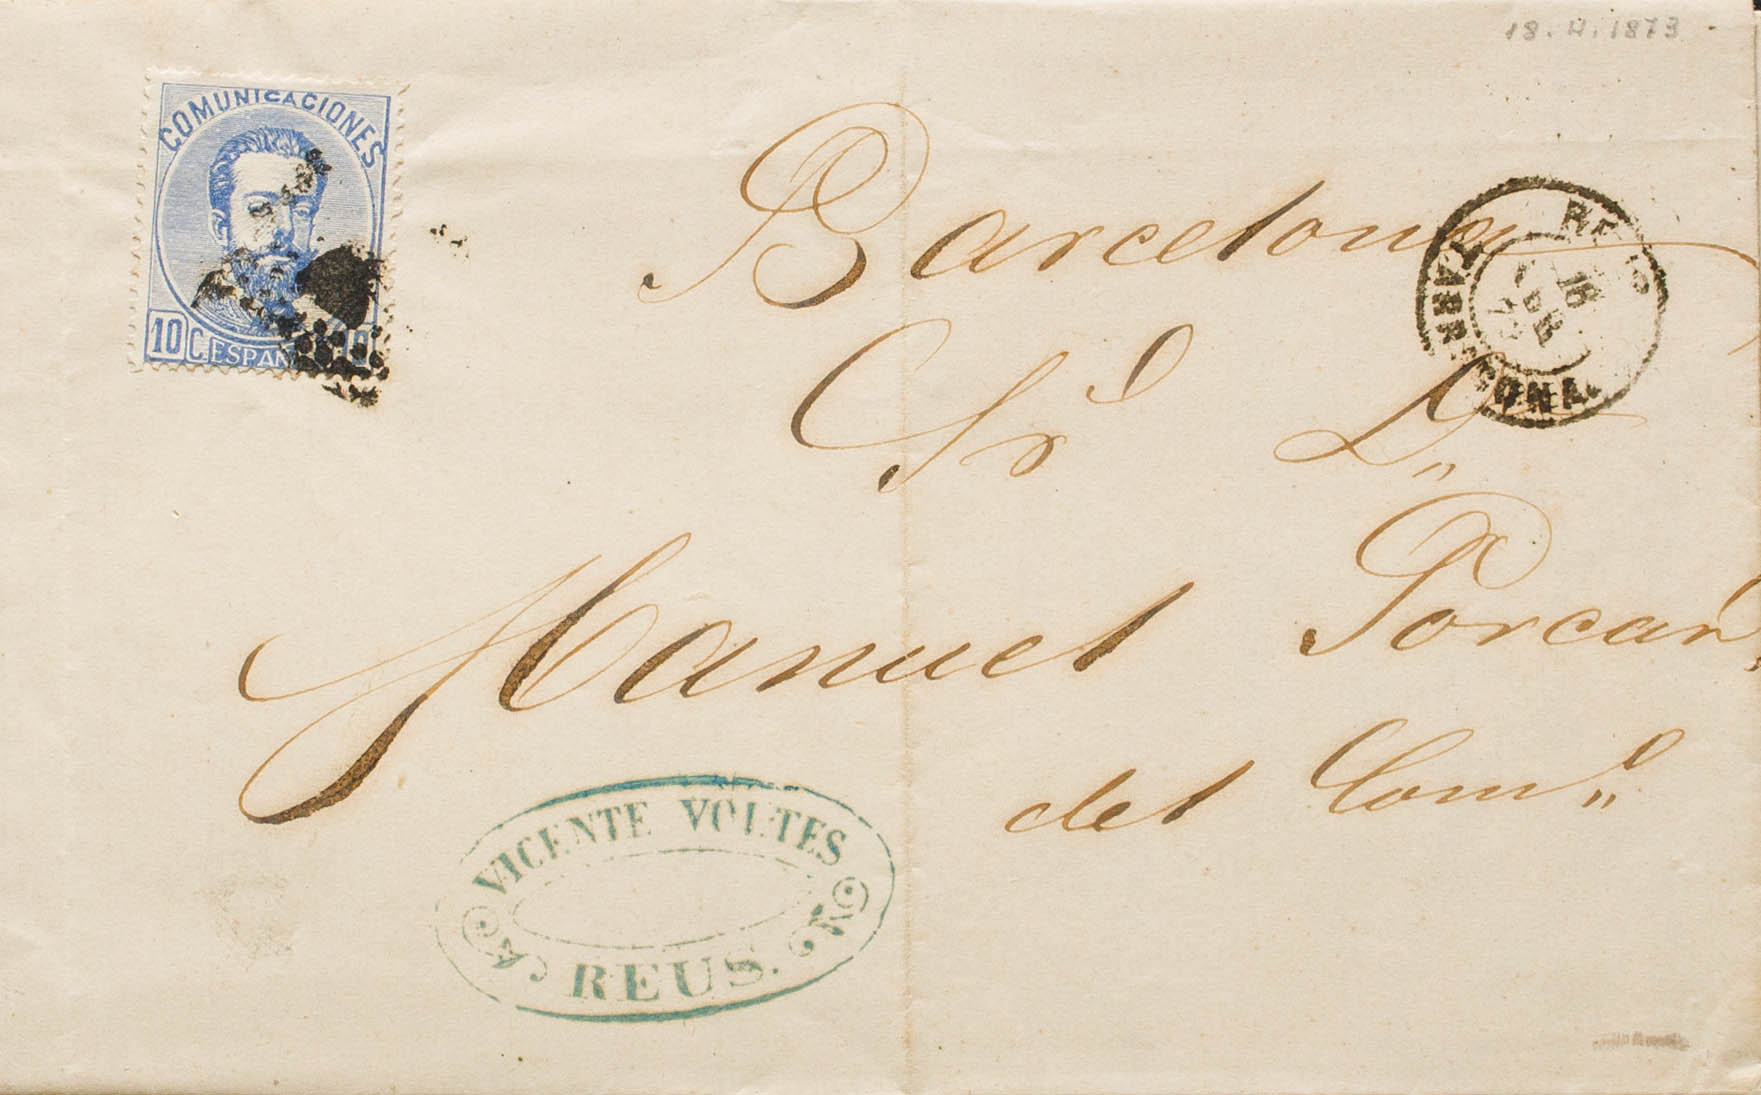 18.IV.1873
COMUNICACIONES
10 C. ESPAÑ 10
Barcelona
REUS
18
ABR
73
TARRAGONA
Sr. D.
Manuel Porcar
del Com.o
VICENTE VOLTES
REUS.